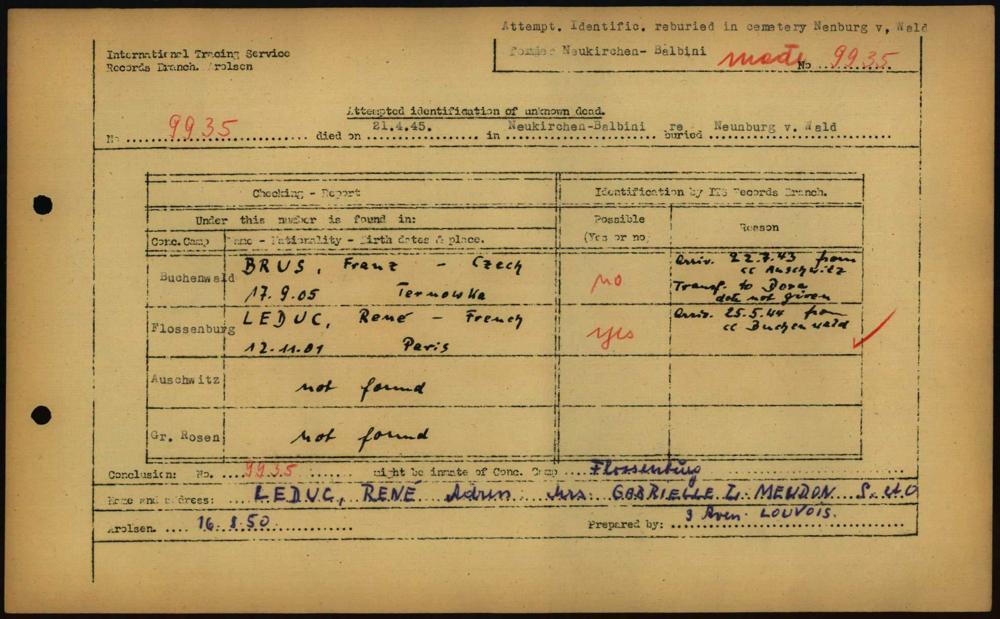 Attempt. Identific. reburied in cemetery Nenburg v, Wald
former Neukirchen- Balbini
made No 9935
International Tracing Service
Records Branch. Arolsen
Attempted identification of unknown dead.
No 9935 died on 21.4.45. in Neukirchen-Balbini re buried Neunburg v. Wald
Checking - Report
Identification by ITS Records Branch.
Under this number is found in:
Possible (Yes or no)
Reason
Conc.Camp
Name - Nationality - Birth dates & place.
Buchenwald
BRUS, Franz - Czech
17.9.05 Ternowka
no
Arriv. 22.7.43 from
cc Auschwitz
Transf. to Dora
date not given
Flossenburg
LEDUC, René - French
12.11.01 Paris
yes
Arriv. 25.5.44 from
cc Buchenwald
Auschwitz
not found
Gr. Rosen
not found
Conclusion: No. 9935 might be inmate of Conc. Camp Flossenbürg
Name and address: LEDUC, RENÉ Adress Mrs. GABRIELLE L. MEUDON S. et O
3 Aven. LOUVOIS.
Arolsen. 16.8.50 Prepared by: